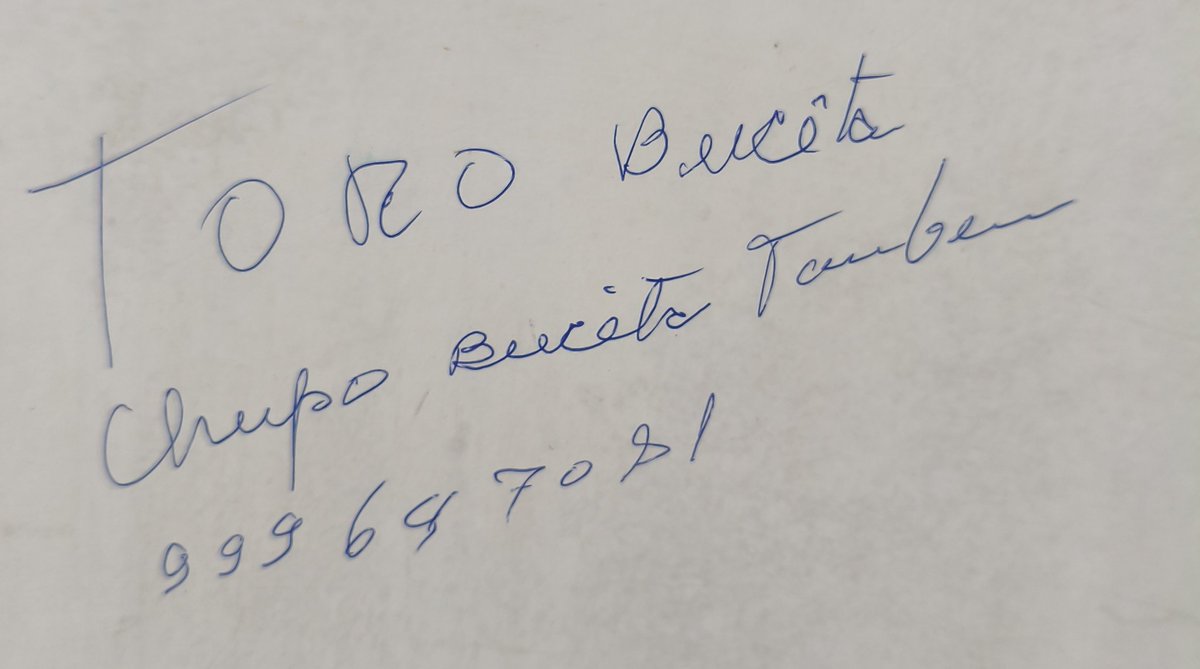 TORO Bucêta
Chupo Bucêta Tambem
999647081